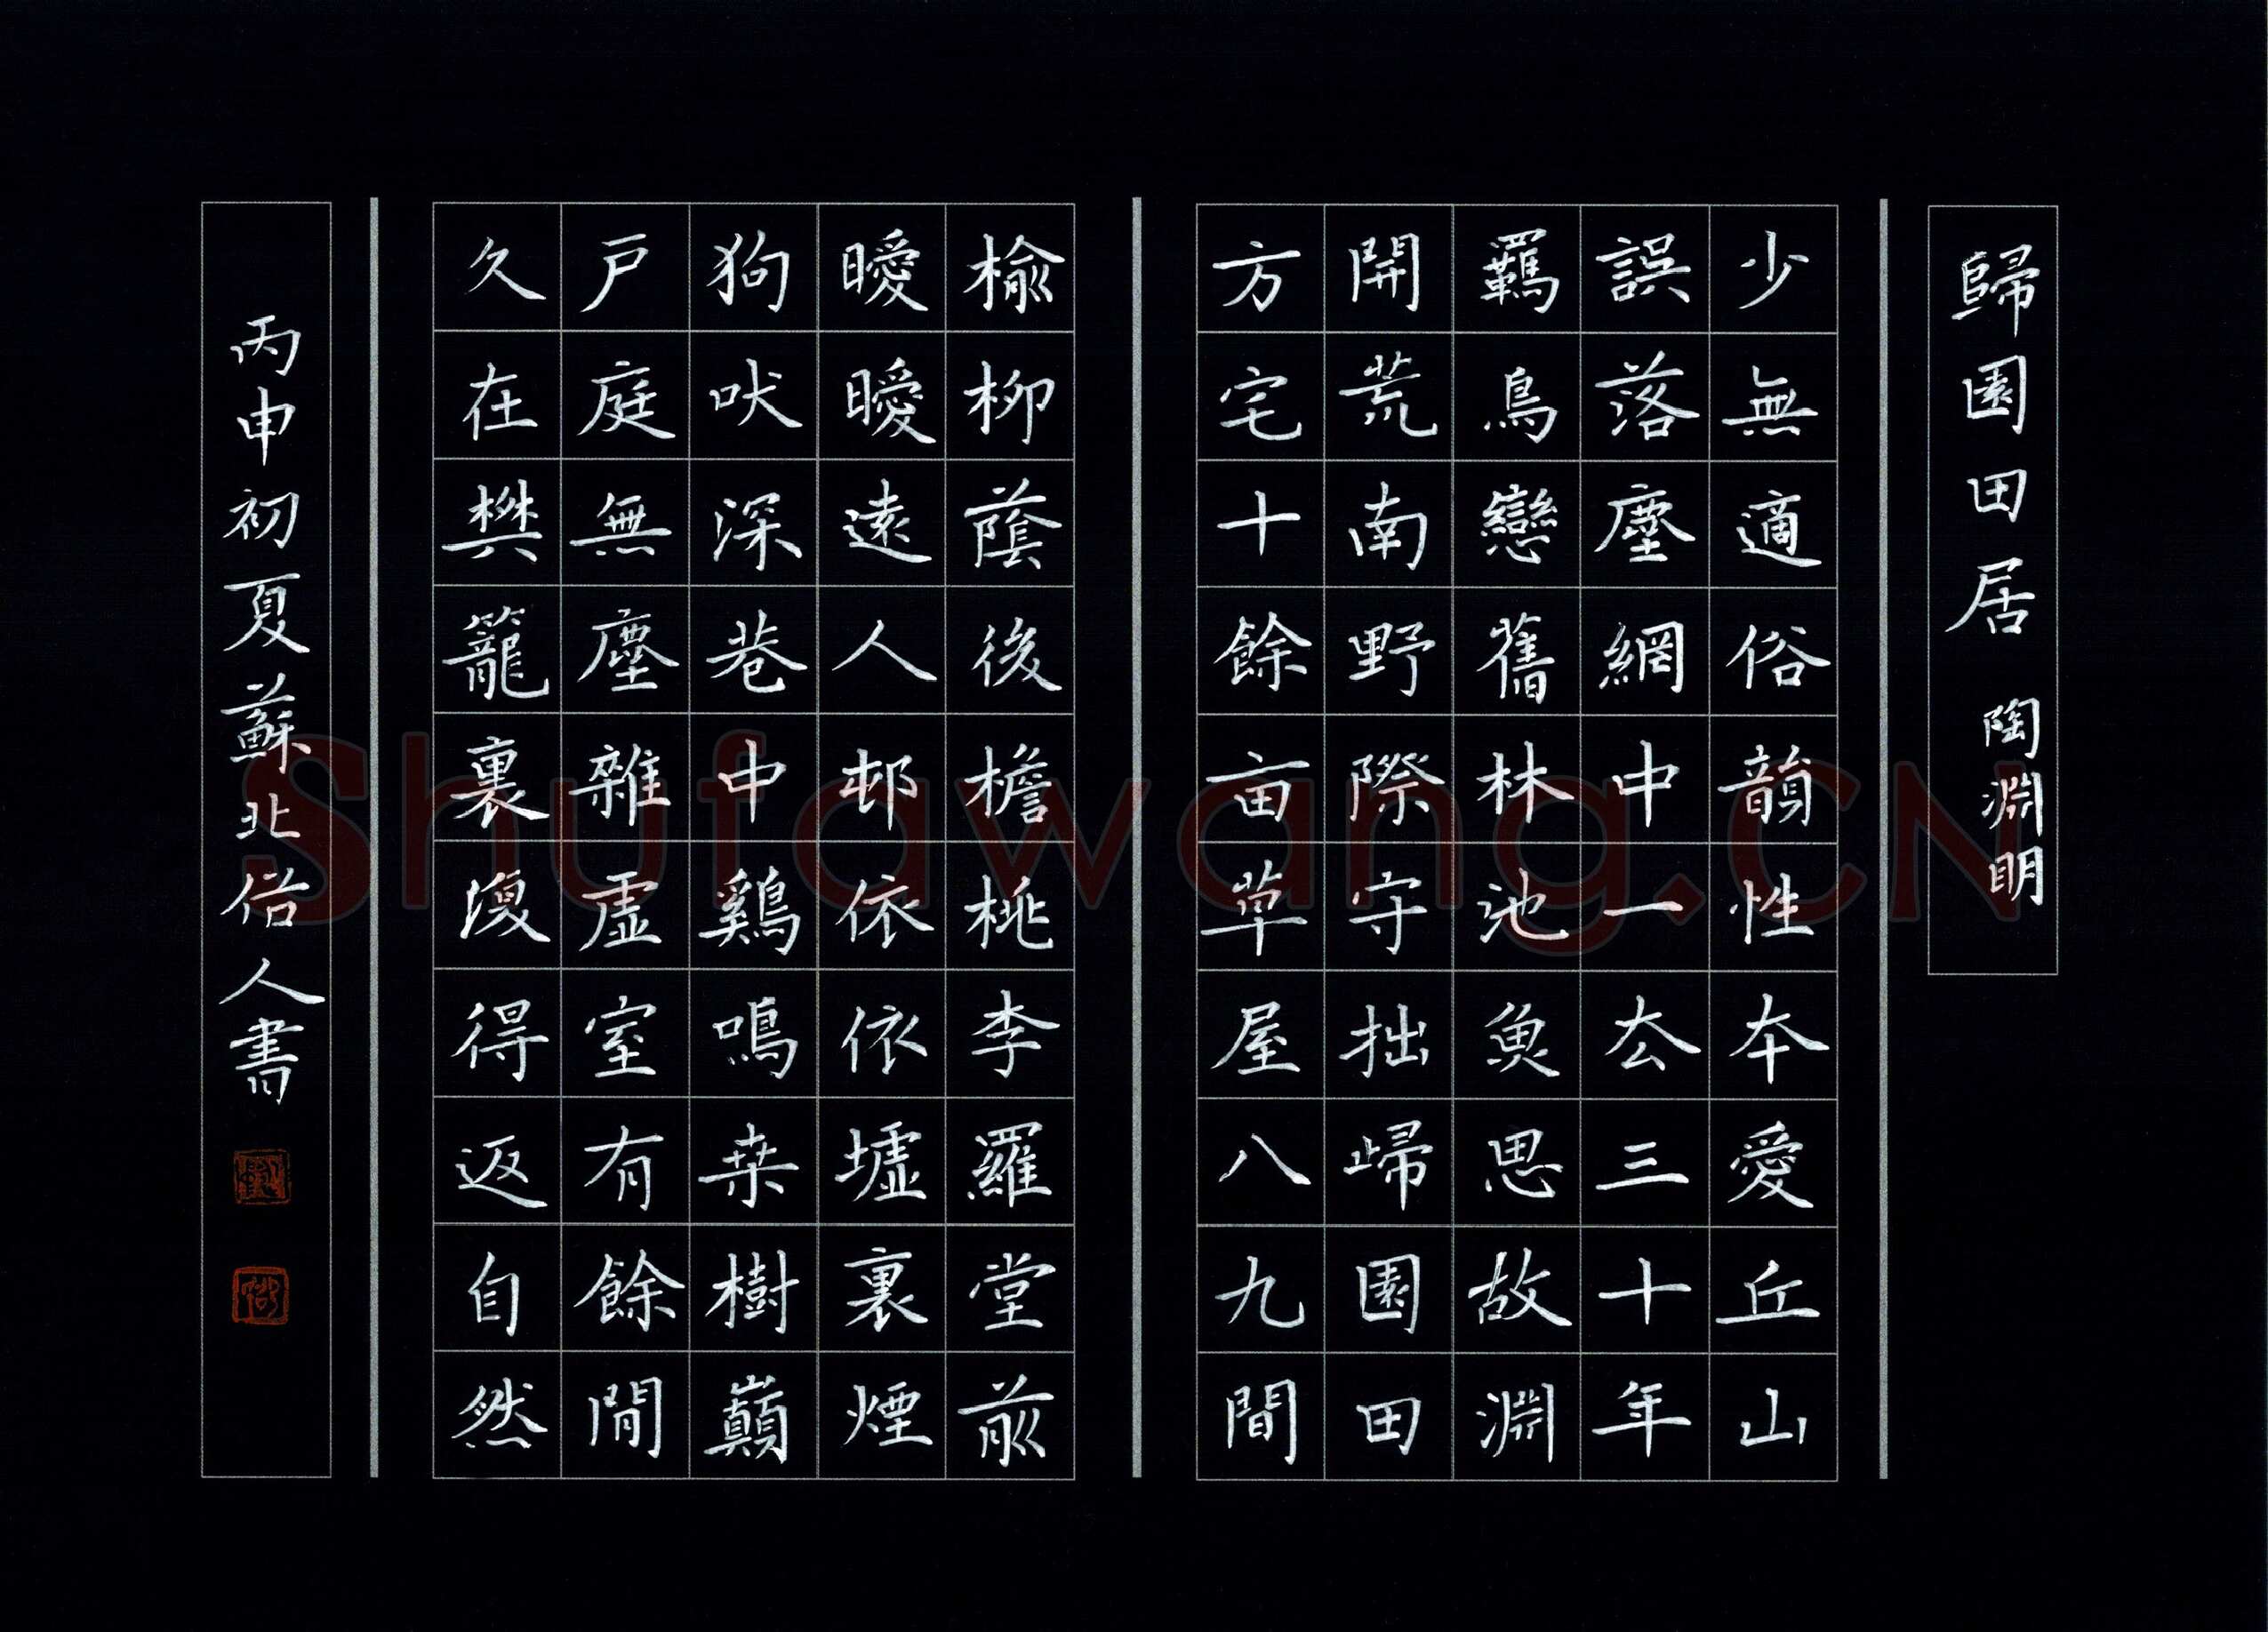 歸園田居 陶淵明
少無適俗韻性本愛丘山
誤落塵網中一厺三十年
羈鳥戀舊林池魚思故淵
開荒南野際守拙歸園田
方宅十餘亩草屋八九間
榆柳蔭後檐桃李羅堂前
曖曖遠人邨依依墟裏煙
狗吠深巷中鷄鳴桒樹巔
戶庭無塵雜虛室有餘閒
久在樊籠裏復得返自然
丙申初夏蘇北俗人書
Shufawang.CN